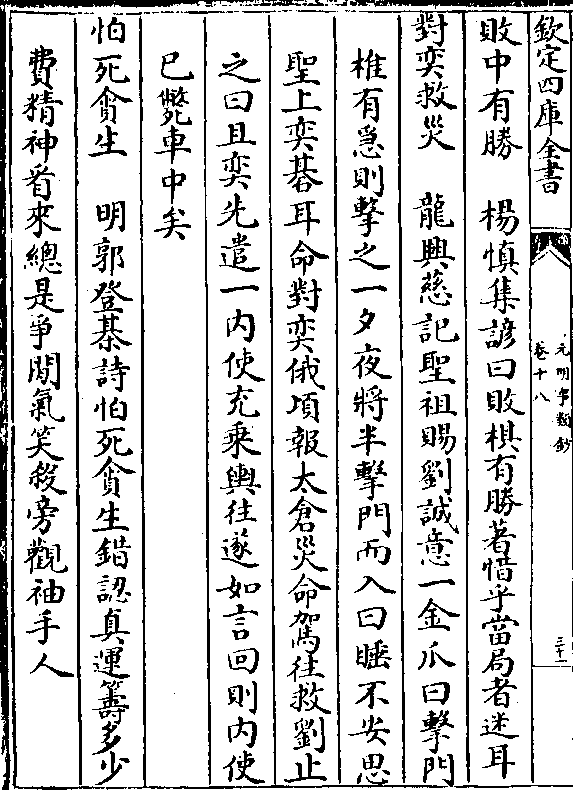 欽定四庫全書
元明事類鈔
卷十八
三十二
敗中有勝　楊慎集諺曰敗棋有勝著惜乎當局者迷耳
對奕救災　龍興慈記聖祖賜劉誠意一金瓜曰擊門
椎有急則擊之一夕夜將半擊門而入曰睡不安思
聖上奕碁耳命對奕俄頃報太倉災命駕往救劉止
之曰且奕先遣一內使充乗輿往遂如言回則内使
已斃車中矣
怕死貪生　明郭登棊詩怕死貪生錯認真運籌多少
費精神看來總是爭閒氣笑殺旁觀袖手人